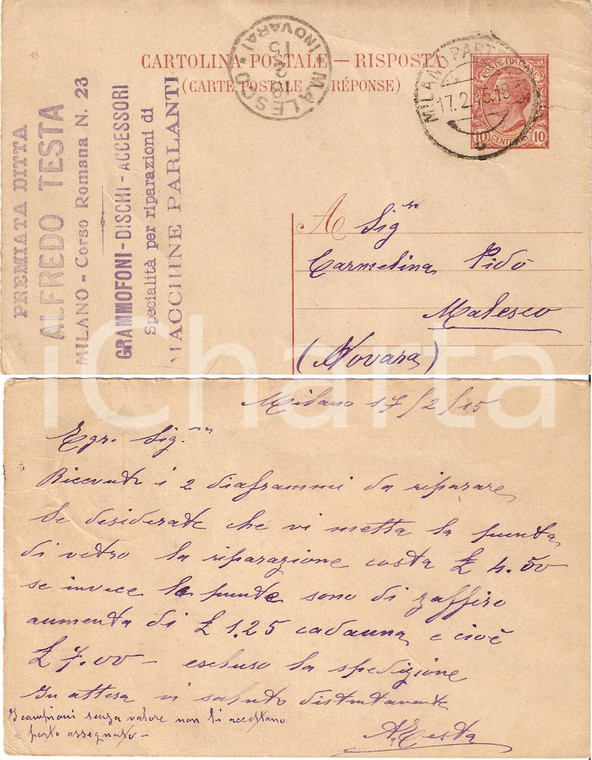 CARTOLINA POSTALE – RISPOSTA
(CARTE POSTALE RÉPONSE)
MALESCO
(NOVARA)
MILANO PARTENZA
17.2.15.18
POSTE ITALIANE
10 CENTESIMI 10
PREMIATA DITTA
ALFREDO TESTA
MILANO - Corso Romana N. 23
GRAMMOFONI - DISCHI - ACCESSORI
Specialità per riparazioni di
MACCHINE PARLANTI
A Sig.re
Carmelina Pidò
Malesco
(Novara)
iCharta
Milano 17/2/15
Egr. Sig.re
Ricevuto i 2 diaframmi da riparare
Se desiderate che vi metta la punta
di vetro la riparazione costa £ 4.50
se invece le punte sono di zaffiro
aumenta di £ 1.25 cadauna e cioè
£ 7.00 – escluso la spedizione
In attesa vi saluto distintamente
A. Testa
I campioni senza valore non li accettano
a porto assegnato -